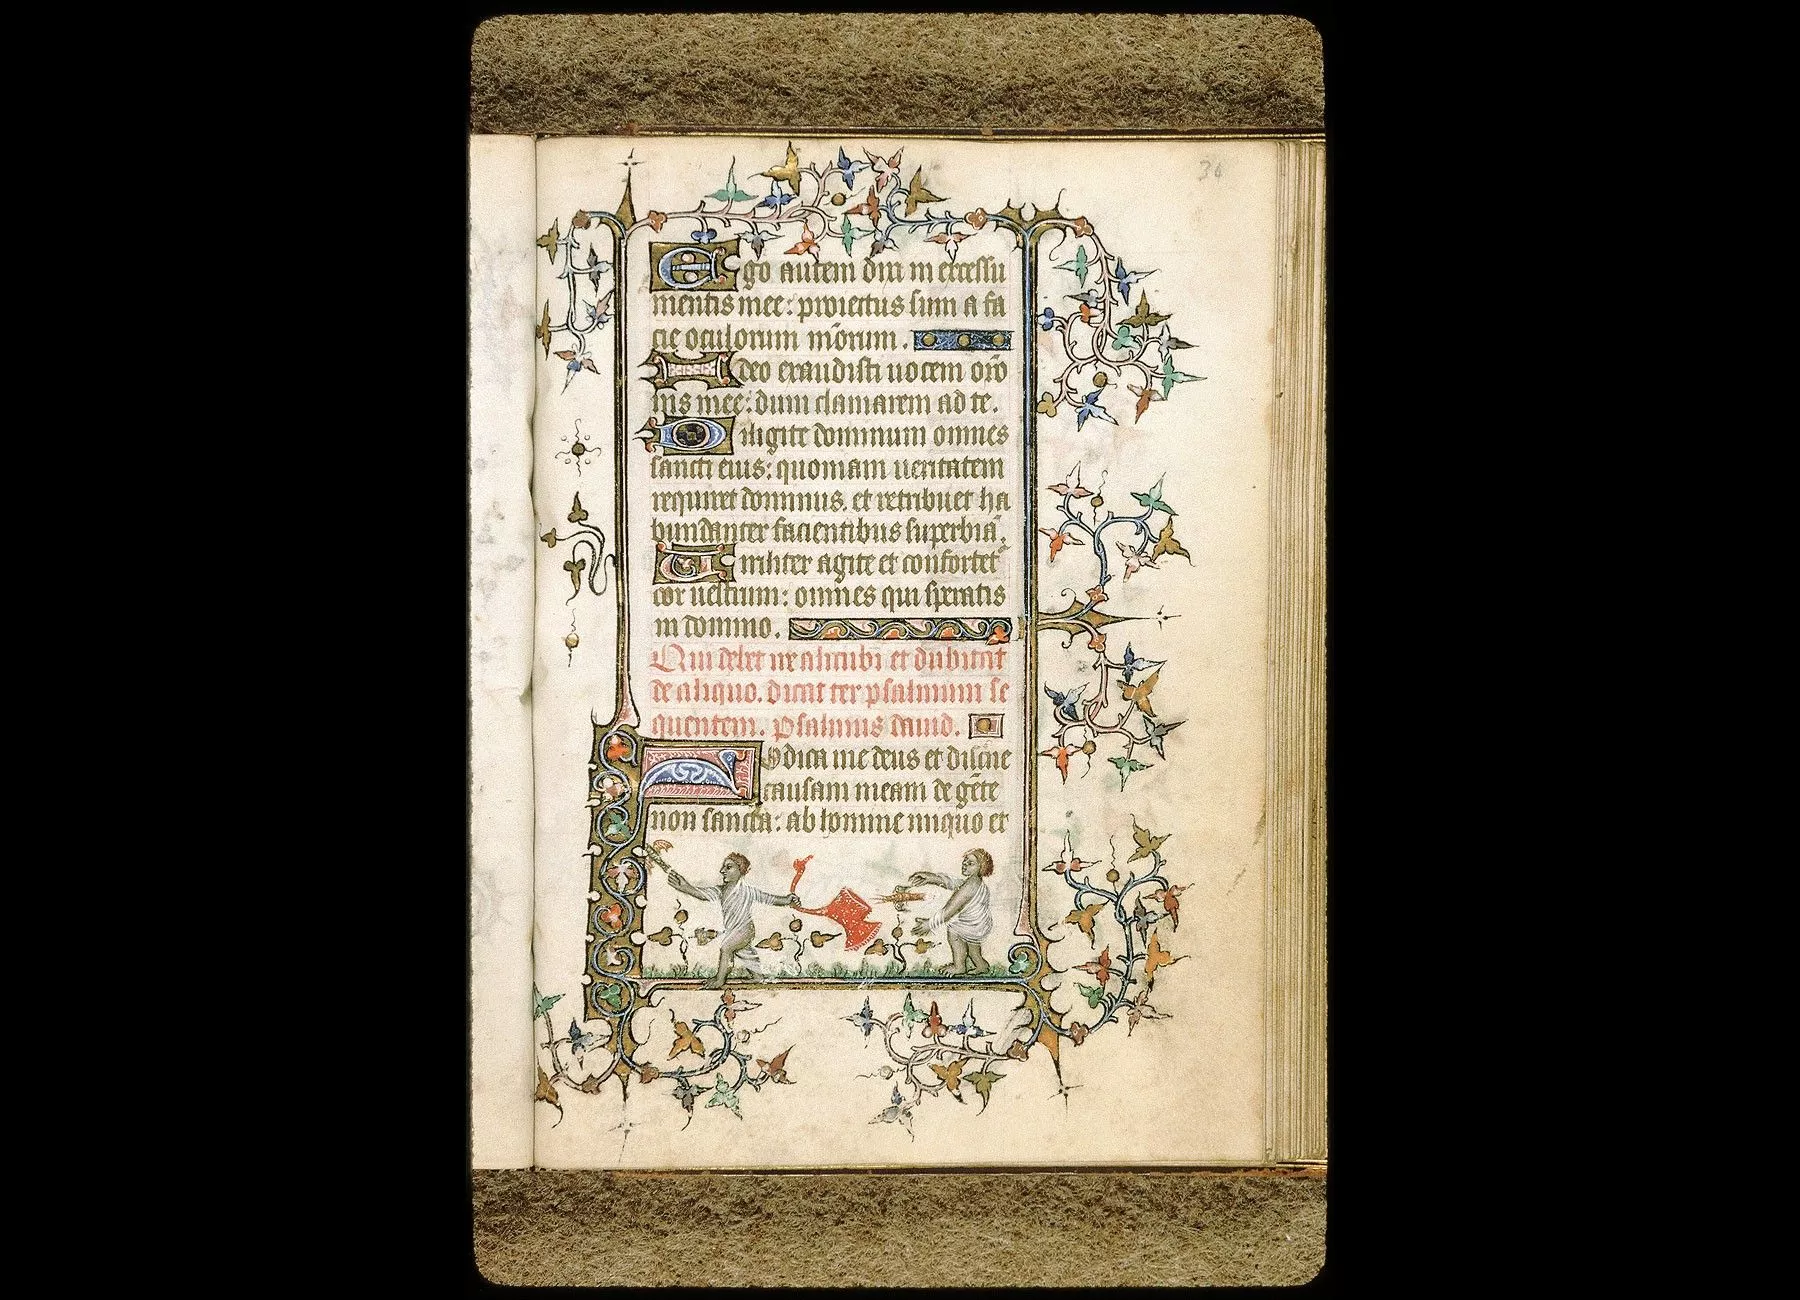 36
Ego autem dixi in excessu
mentis mee: proiectus sum a fa
cie oculorum tuorum.
Ideo exaudisti uocem orō
nis mee: dum clamarem ad te.
Diligite dominum omnes
sancti eius: quoniam ueritatem
requiret dominus. et retribuet ha
bundanter facientibus superbiā.
Uiriliter agite et confortet
cor uestrum: omnes qui speratis
in domino.
Qui debet ire alicubi et dubitat
de aliquo. dicat ter psalmum se
quentem. psalmus dauid.
Iudica me deus et discne
causam meam de gēte
non sancta: ab homine iniquo et